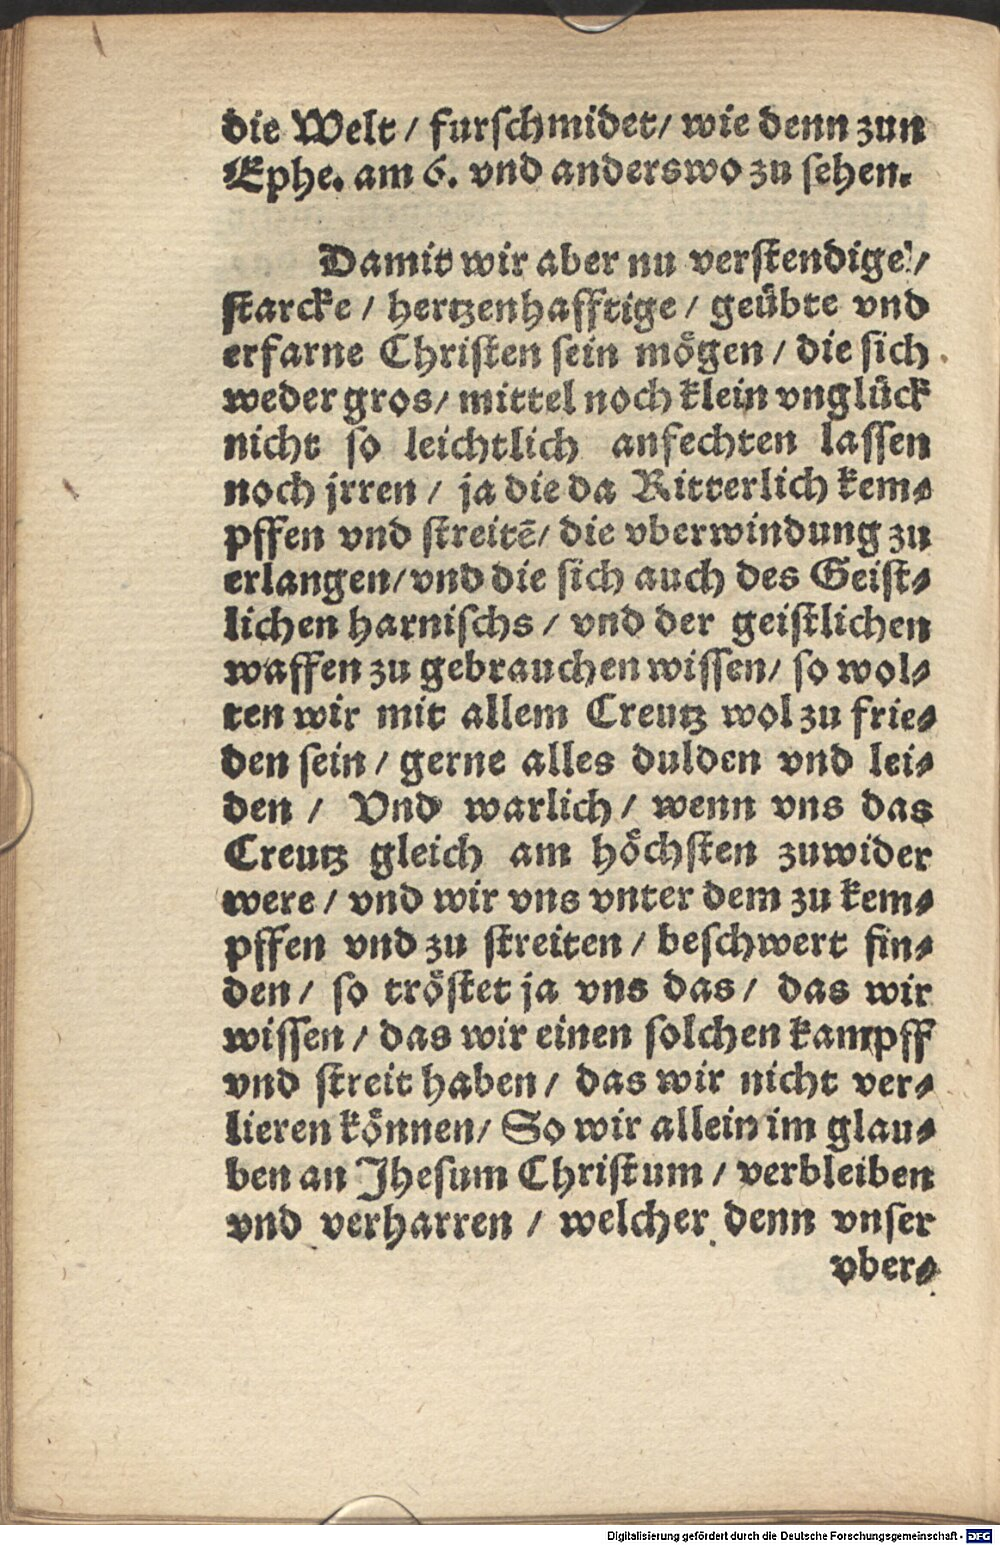 die Welt / furschmidet / wie denn zun
Ephe. am 6. vnd anderswo zu sehen.
Damit wir aber nu verstendige /
starcke / hertzenhafftige / geübte vnd
erfarne Christen sein mögen / die sich
weder gros / mittel noch klein vnglück
nicht so leichtlich anfechten lassen
noch jrren / ja die da Ritterlich kem⸗
pffen vnd streitē / die vberwindung zu
erlangen / vnd die sich auch des Geist⸗
lichen harnischs / vnd der geistlichen
waffen zu gebrauchen wissen / so wol⸗
ten wir mit allem Creutz wol zu frie⸗
den sein / gerne alles dulden vnd lei⸗
den / Vnd warlich / wenn vns das
Creutz gleich am höchsten zuwider
were / vnd wir vns vnter dem zu kem⸗
pffen vnd zu streiten / beschwert fin⸗
den / so tröstet ja vns das / das wir
wissen / das wir einen solchen kampff
vnd streit haben / das wir nicht ver⸗
lieren können / So wir allein im glau⸗
ben an Jhesum Christum / verbleiben
vnd verharren / welcher denn vnser
vber⸗
Digitalisierung gefördert durch die Deutsche Forschungsgemeinschaft - DFG